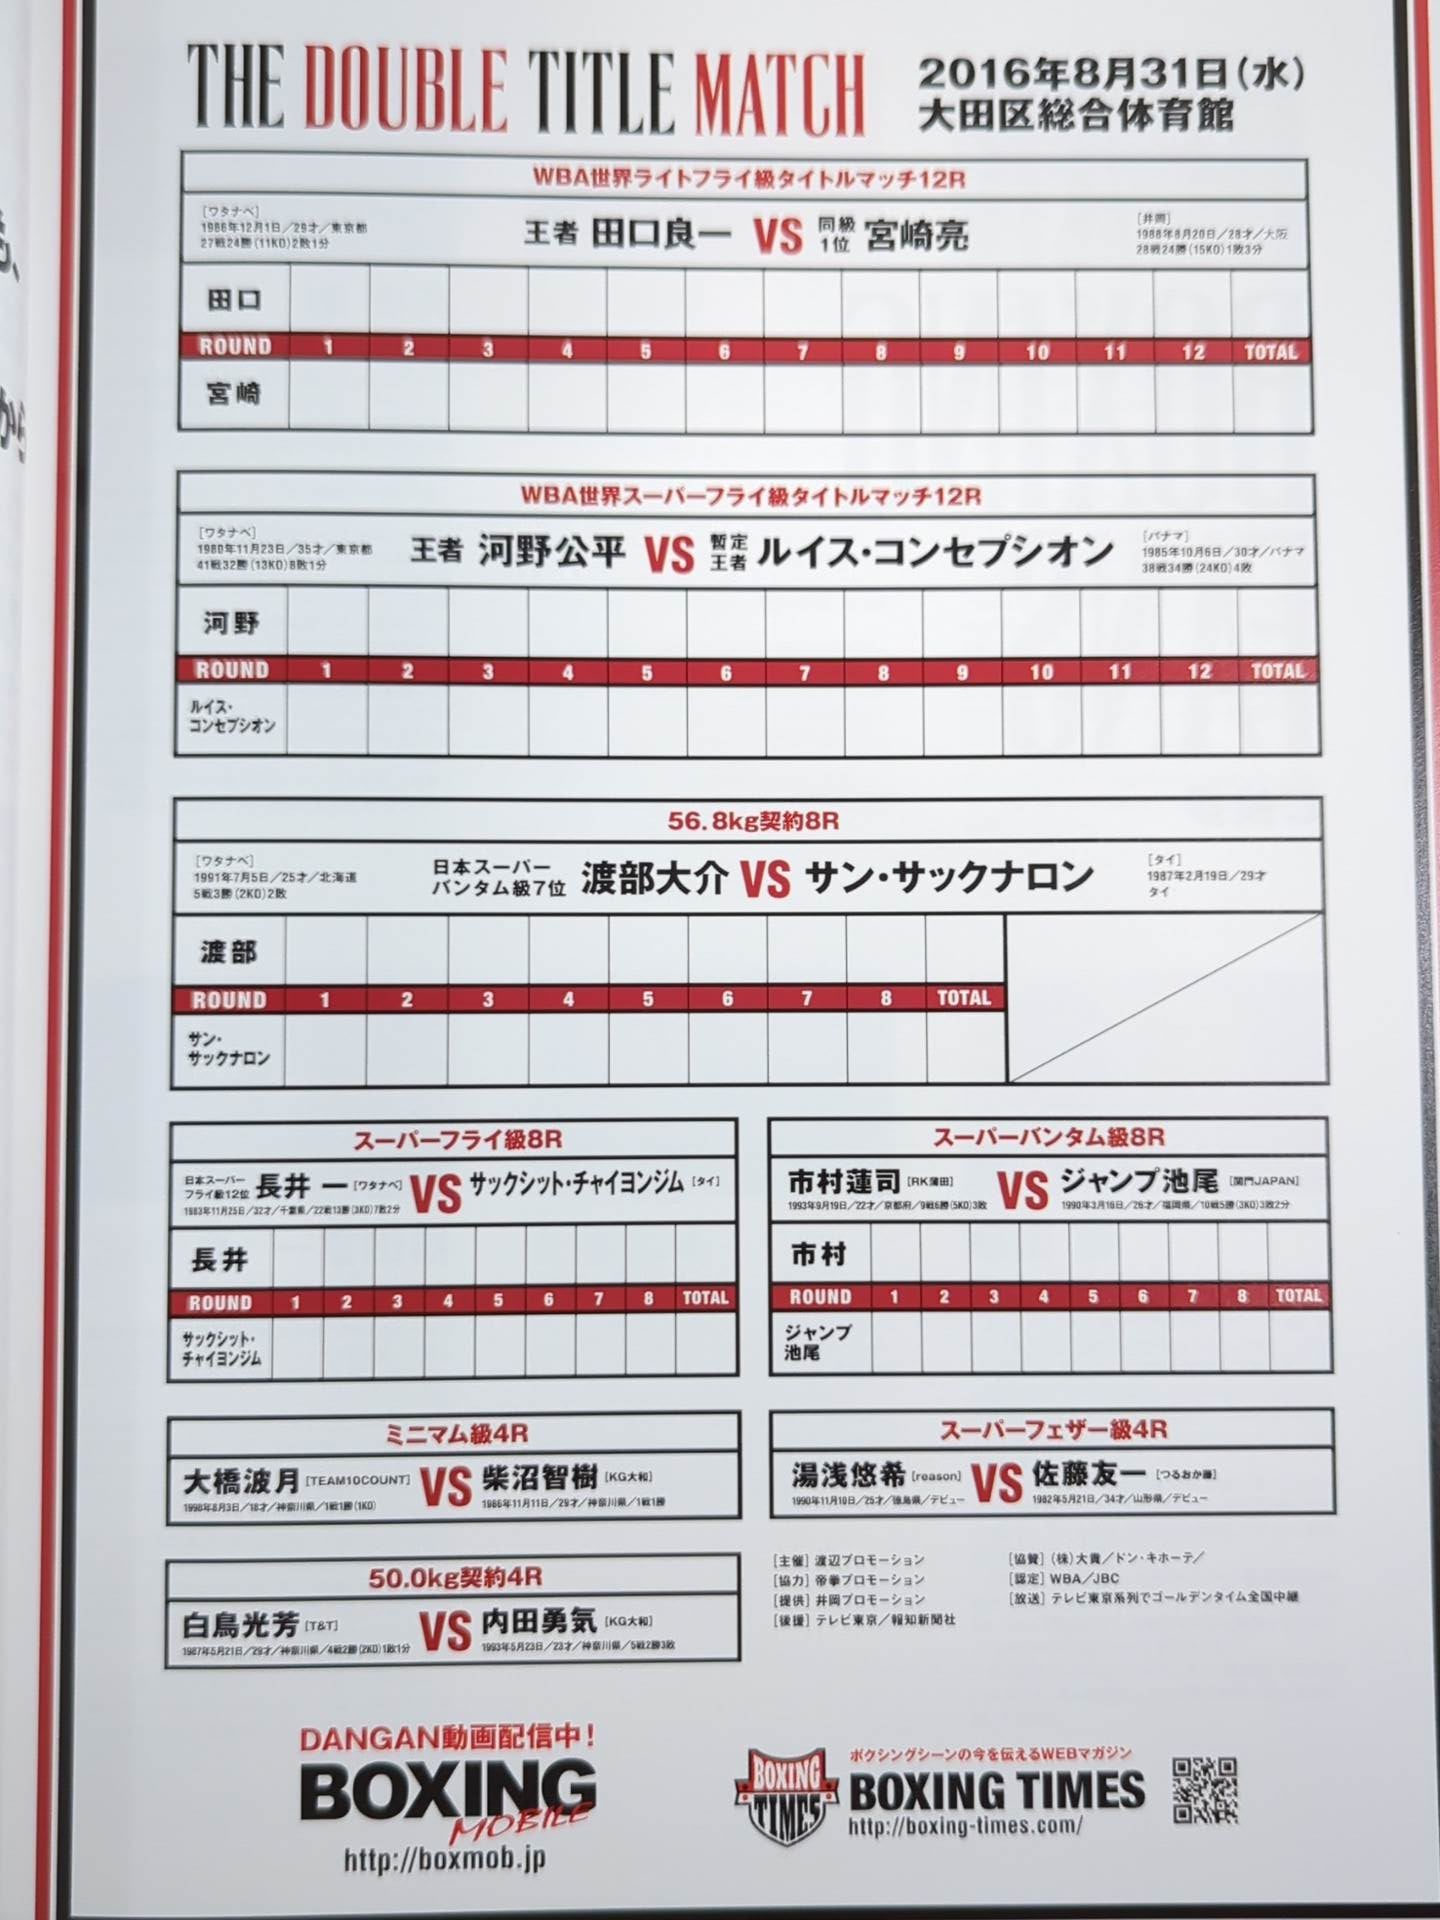 THE DOUBLE TITLE MATCH
2016年8月31日(水)
大田区総合体育館
WBA世界ライトフライ級タイトルマッチ12R
[ワタナベ]
1986年12月1日／29才／東京都
27戦24勝(11KO)2敗1分
王者 田口良一 VS 同級1位 宮崎亮
[井岡]
1988年8月20日／28才／大阪
28戦24勝(15KO)1敗3分
田口
ROUND 1 2 3 4 5 6 7 8 9 10 11 12 TOTAL
宮崎
WBA世界スーパーフライ級タイトルマッチ12R
[ワタナベ]
1980年11月23日／35才／東京都
41戦32勝(13KO)8敗1分
王者 河野公平 VS 暫定王者 ルイス・コンセプシオン
[パナマ]
1985年10月6日／30才／パナマ
38戦34勝(24KO)4敗
河野
ROUND 1 2 3 4 5 6 7 8 9 10 11 12 TOTAL
ルイス・
コンセプシオン
56.8kg契約8R
[ワタナベ]
1991年7月5日／25才／北海道
5戦3勝(2KO)2敗
日本スーパーバンタム級7位 渡部大介 VS サン・サックナロン
[タイ]
1987年2月19日／29才
タイ
渡部
ROUND 1 2 3 4 5 6 7 8 TOTAL
サン・
サックナロン
スーパーフライ級8R
日本スーパーフライ級12位 長井一 [ワタナベ] VS サックシット・チャイヨンジム [タイ]
1983年11月25日／32才／千葉県／22戦13勝(3KO)7敗2分
長井
ROUND 1 2 3 4 5 6 7 8 TOTAL
サックシット・
チャイヨンジム
スーパーバンタム級8R
市村蓮司 [RK蒲田] VS ジャンプ池尾 [関門JAPAN]
1993年9月19日／22才／京都府／9戦6勝(5KO)3敗
1990年3月16日／26才／福岡県／10戦5勝(3KO)3敗2分
市村
ROUND 1 2 3 4 5 6 7 8 TOTAL
ジャンプ
池尾
ミニマム級4R
大橋波月 [TEAM10COUNT] VS 柴沼智樹 [KG大和]
1998年8月3日／18才／神奈川県／1戦1勝(1KO)
1986年11月11日／29才／神奈川県／1戦1勝
スーパーフェザー級4R
湯浅悠希 [reason] VS 佐藤友一 [つるおか藤]
1990年11月10日／25才／徳島県／デビュー
1982年5月21日／34才／山形県／デビュー
50.0kg契約4R
白鳥光芳 [T&T] VS 内田勇気 [KG大和]
1987年5月21日／29才／神奈川県／4戦2勝(2KO)1敗1分
1993年5月23日／23才／神奈川県／5戦2勝3敗
[主催] 渡辺プロモーション
[協力] 帝拳プロモーション
[提供] 井岡プロモーション
[後援] テレビ東京／報知新聞社
[協賛] (株)大貴／ドン・キホーテ／
[認定] WBA／JBC
[放送] テレビ東京系列でゴールデンタイム全国中継
DANGAN動画配信中！
BOXING
MOBILE
http://boxmob.jp
BOXING
TIMES
ボクシングシーンの今を伝えるWEBマガジン
BOXING TIMES
http://boxing-times.com/